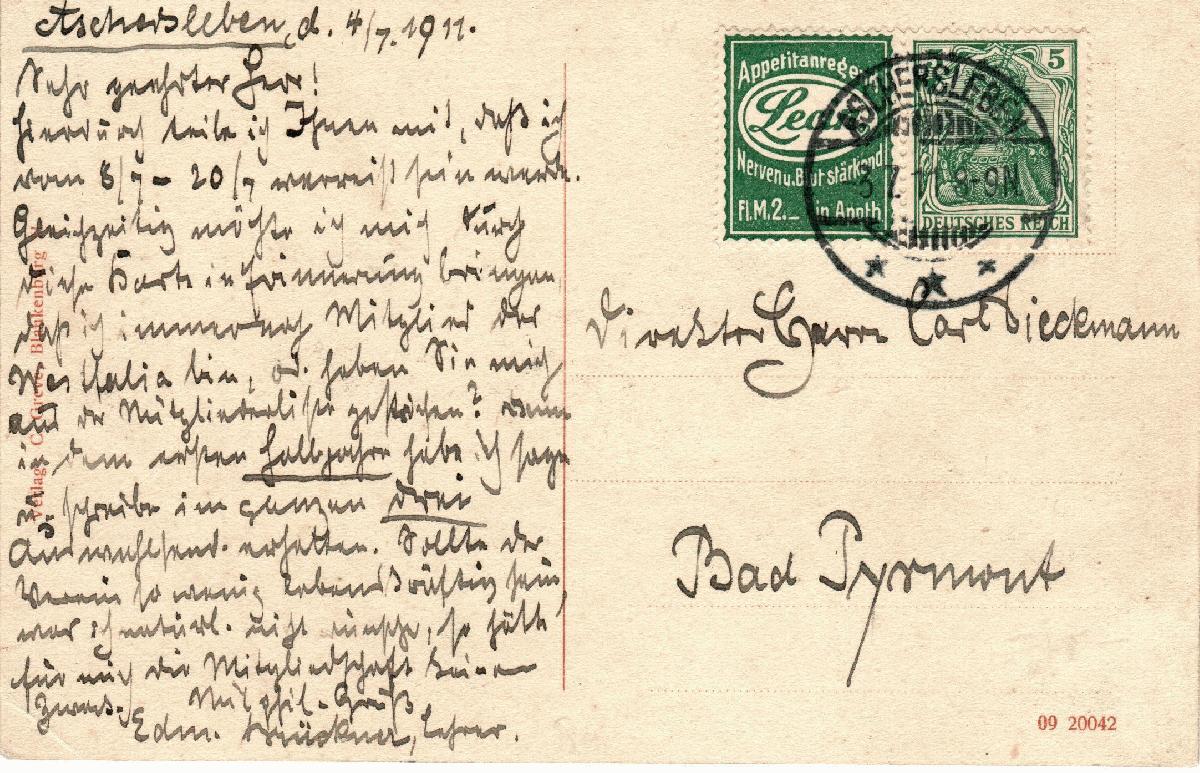 Aschersleben, d. 4/7. 1911.
Sehr geehrter Herr!
Hierdurch teile ich Ihnen mit, daß ich
vom 8/7 – 20/7 verreist sein werde.
Gleichzeitig möchte ich mich durch
diese Karte in Erinnerung bringen,
daß ich immer noch Mitglied der
Westfalia bin, od. haben Sie mich
aus der Mitgliederliste gestrichen? Denn
in dem ersten Halbjahre habe ich sage
u. schreibe im ganzen drei
Auswahlsend. erhalten. Sollte der
Verein so wenig lebenskräftig sein,
was ich natürl. nicht wünsche, so hätte
für mich die Mitgliedschaft keinen
Zweck. Mit phil. Gruß
Edm. Brückner, Lehrer.
Verlag C. Blankenburg
Appetitanregend
Leci
Nerven u. Blut stärkend
Fl. M. 2._ in Apoth.
5
DEUTSCHES REICH
ASCHERSLEBEN
3.7.11. 8-9N.
Direkter Herrn Carl Dieckmann
Bad Pyrmont
09 20042